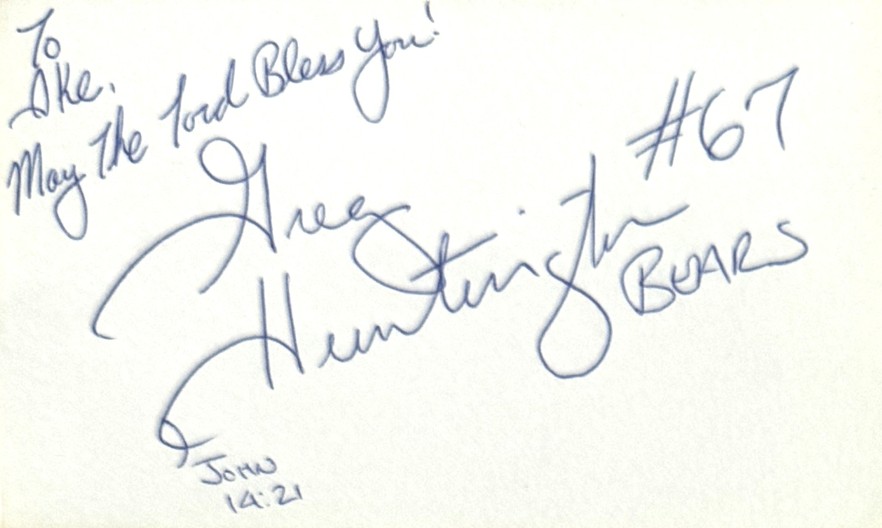 To
Ike.
May The Lord Bless You!
Greg
Huntington
#67
BEARS
John
14:21